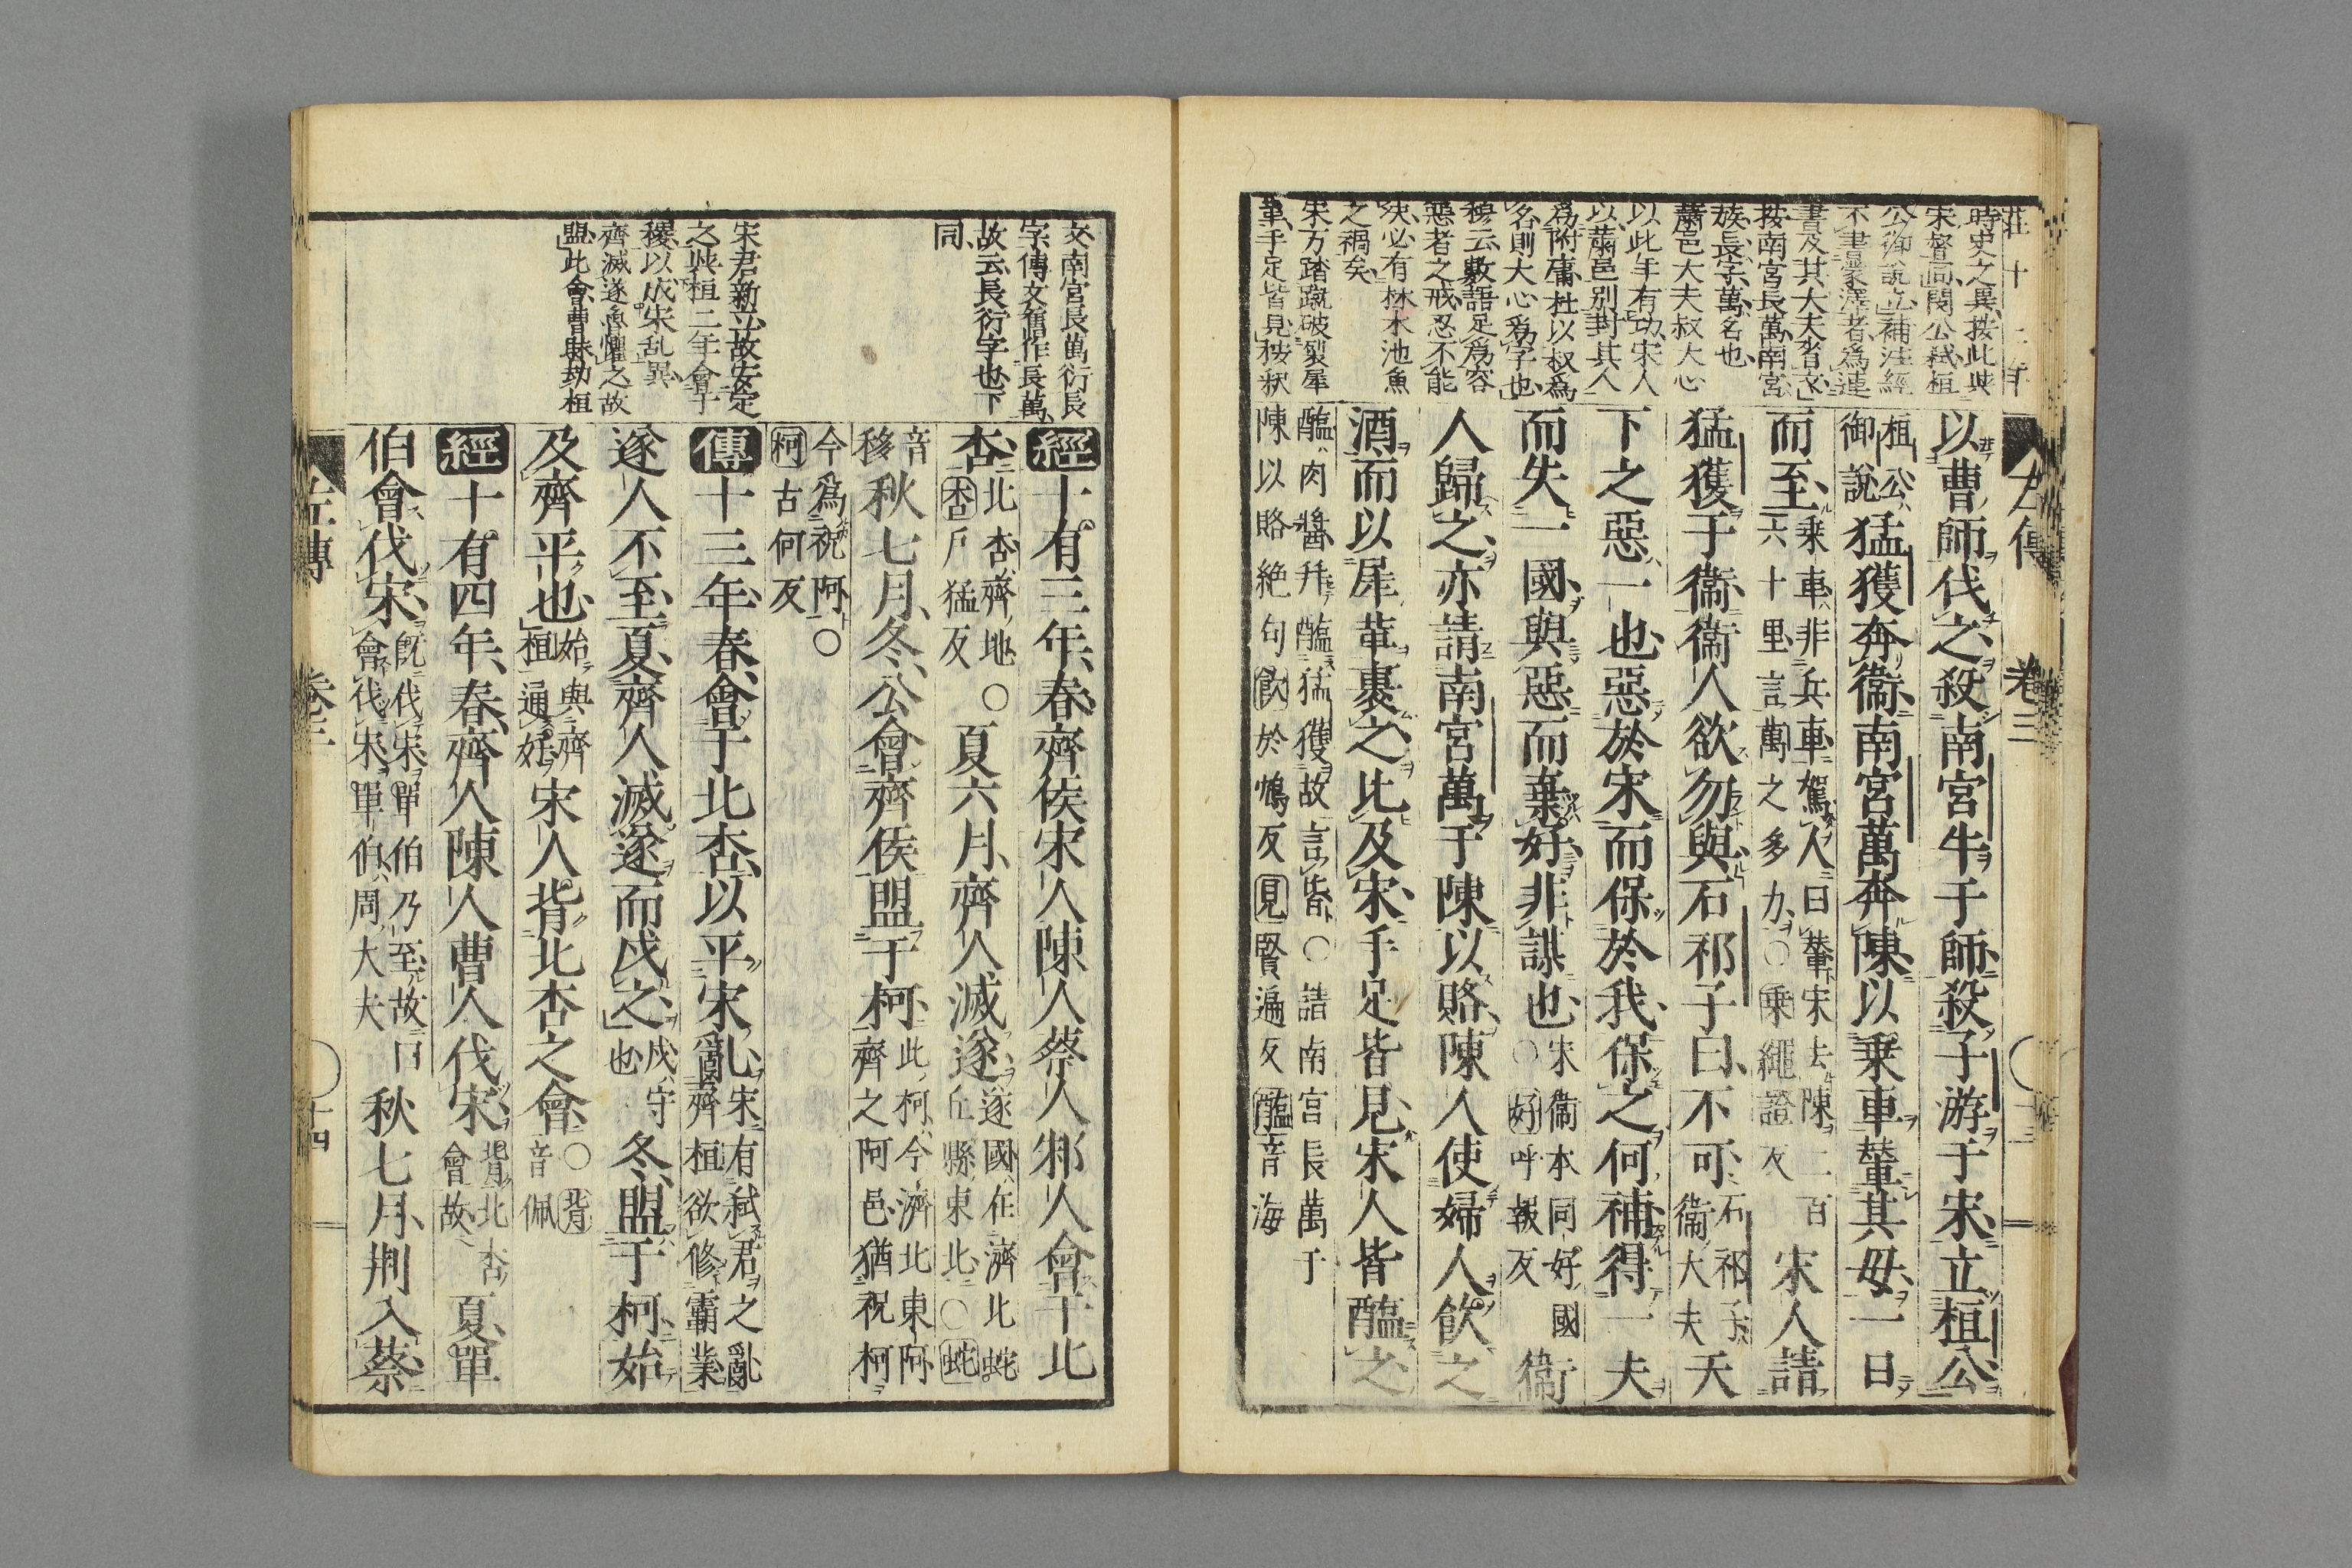 莊十二年
時史之異按此與
宋督同閔公弑桓
公御說立補注經
不書蒙澤者爲連
書及其大夫者
按南宮長萬南宮
族長字萬名也
蕭邑大夫叔大心
以此年有功宋人
以蕭邑別封其人
爲附庸杜以叔爲
名則大心爲字也
穆云數語足爲容
惡者之戒忍不能
決必有林木池魚
之禍矣
宋万踏蹴破裂犀
革手足皆見按釈
左傳 卷三
以曹師伐之殺南宮牛于師殺子游于宋立桓公
桓公御說猛獲奔衞南宮萬奔陳以乘車輦其母一日
而至乘車非兵車駕人曰輦宋去陳二百六十里言萬之多力○乘繩證反宋人請
猛獲于衞衞人欲勿與石祁子曰不可石祁子衞大夫天
下之惡一也惡於宋而保於我保之何補得一夫
而失一國與惡而棄好非謀也宋衞本同好國○好呼報反衞
人歸之亦請南宮萬于陳以賂陳人使婦人飲之
酒而以犀革裹之比及宋手足皆見宋人皆醢之
醢肉醬并醢猛獲故言皆○請南宮長萬于
陳以賂絕句飲於鴆反見賢遍反醢音海
文南宮長萬衍長
字傳文舊作長萬
故云長衍字也下
同
宋君新立故安定
之與桓二年會于
稷以成宋乱異
齊滅遂魯懼之故
盟此會曹眛劫桓
經十有三年春齊侯宋人陳人蔡人邾人會于北
杏北杏齊地○杏戶猛反夏六月齊人滅遂遂國在濟北蛇丘縣東北○蛇
音移秋七月冬公會齊侯盟于柯此柯今濟北東阿齊之阿邑猶祝柯
今爲祝阿○柯古何反
傳十三年春會于北杏以平宋亂宋有弑君之亂齊桓欲修霸業
遂人不至夏齊人滅遂而戍之戍守也冬盟于柯始
及齊平也始與齊桓通好宋人背北杏之會○背音佩
經十有四年春齊人陳人曹人伐宋背北杏會故夏單
伯會伐宋既伐宋單伯乃至故曰會伐宋單伯周大夫秋七月荆入蔡
左傳 卷三 十四